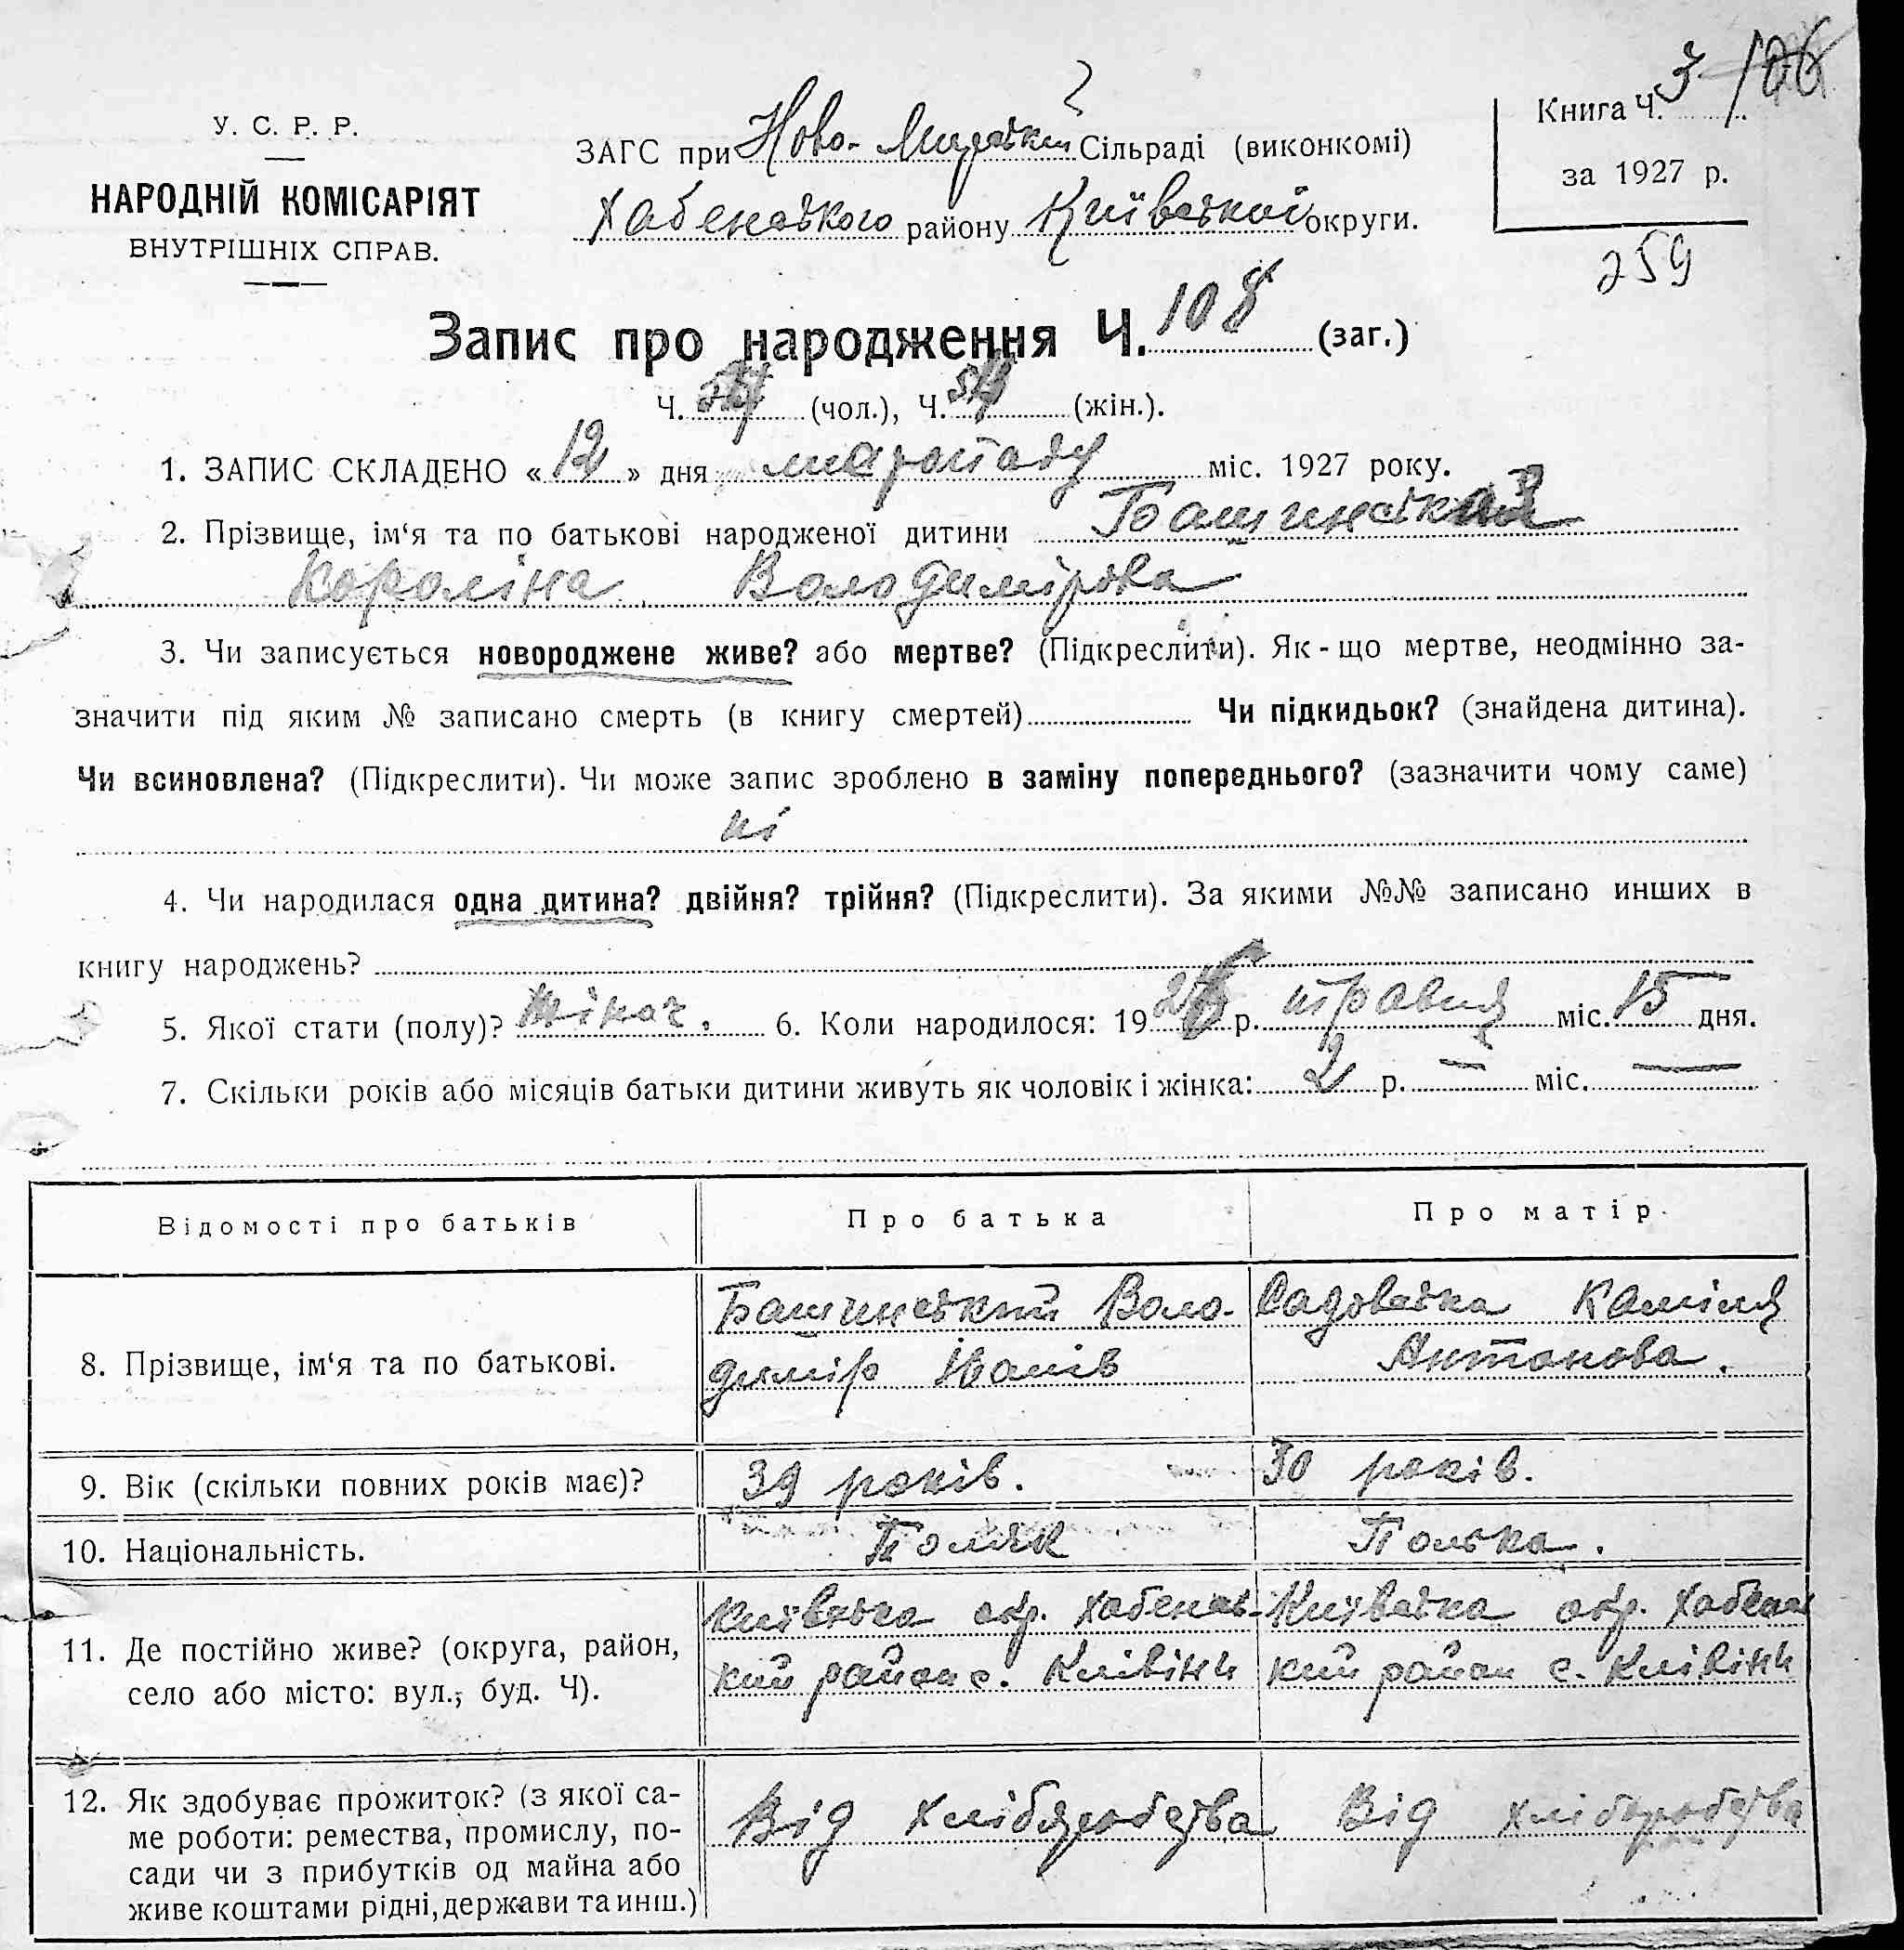 3 106
У. С. Р. Р.
НАРОДНІЙ КОМІСАРІЯТ
ВНУТРІШНІХ СПРАВ.
ЗАГС при Ново- Мирській Сільраді (виконкомі)
Хабенського району Київської округи.
Книга Ч.
за 1927 р.
259
Запис про народження Ч. 108 (заг.)
Ч. (чол.), Ч. (жін.).
1. ЗАПИС СКЛАДЕНО « 12 » дня листопаду міс. 1927 року.
2. Прізвище, ім‘я та по батькові народженої дитини Башинська
Кароліна Володимірова
3. Чи записується новороджене живе? або мертве? (Підкреслити). Як-що мертве, неодмінно за-
значити під яким № записано смерть (в книгу смертей) Чи підкидьок? (знайдена дитина).
Чи всиновлена? (Підкреслити). Чи може запис зроблено в заміну попереднього? (зазначити чому саме)
ні
4. Чи народилася одна дитина? двійня? трійня? (Підкреслити). За якими №№ записано инших в
книгу народжень?
5. Якої стати (полу)? жіноч. 6. Коли народилося: 19 р. травня міс. 15 дня.
7. Скільки років або місяців батьки дитини живуть як чоловік і жінка: 2 р. — міс. —
Відомості про батьків Про батька Про матір
8. Прізвище, ім‘я та по батькові.
Башинський Воло-
димір Іванів
Садовська Каміля
Антонова.
9. Вік (скільки повних років має)? 39 років. 30 років.
10. Національність. Поляк Полька.
11. Де постійно живе? (округа, район,
село або місто: вул., буд. Ч).
Київська окр. Хабенсь-
кий район с. Клівіни
Київська окр. Хабенс
кий район с. Клівіни
12. Як здобуває прожиток? (з якої са-
ме роботи: ремества, промислу, по-
сади чи з прибутків од майна або
живе коштами рідні, держави та инш.)
Від хліборобства
Від хліборобства